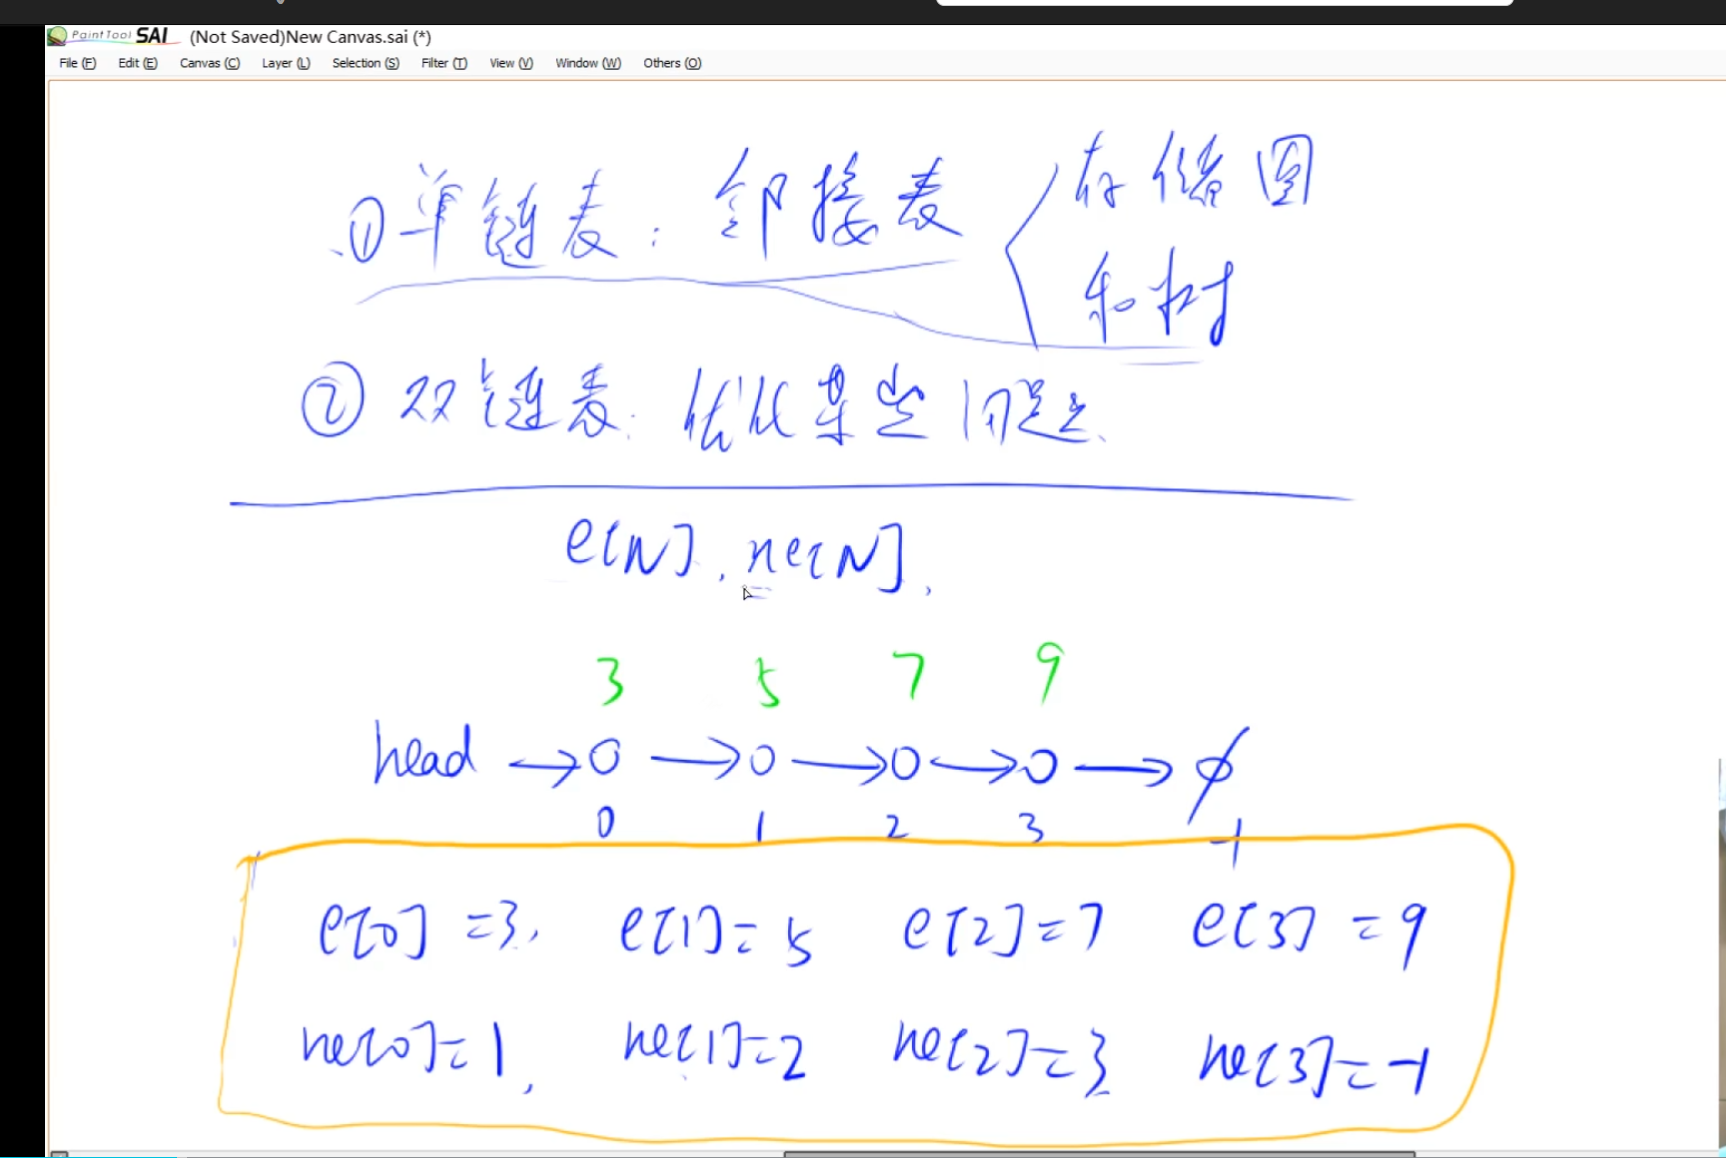 PaintTool SAI (Not Saved)New Canvas.sai (*)
File (F) Edit (E) Canvas (C) Layer (L) Selection (S) Filter (T) View (V) Window (W) Others (O)
①单链表：邻接表 存储图
和树
②双链表：优化某些问题.
e[N], ne[N],
3 5 7 9
head →0 →0 →0 →0 → ∅
0 1 2 3 -1
e[0]=3, e[1]=5 e[2]=7 e[3]=9
ne[0]=1, ne[1]=2 ne[2]=3 ne[3]=-1